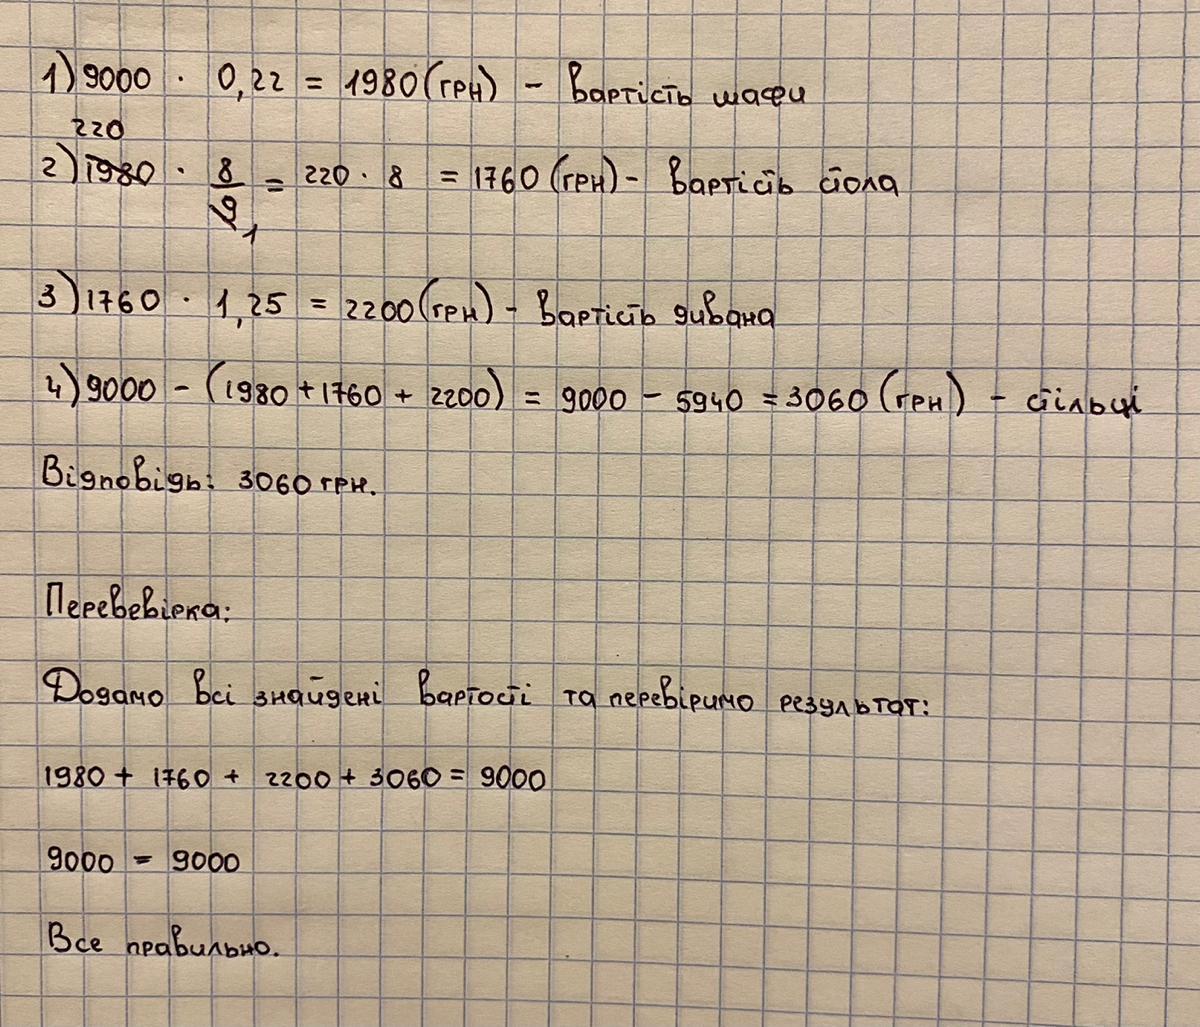 1) 9000 · 0,22 = 1980 (грн) - вартість шафи
220
2) 1980 · 8/9 = 220 · 8 = 1760 (грн) - вартість стола
1
3) 1760 · 1,25 = 2200 (грн) - вартість дивана
4) 9000 - (1980 + 1760 + 2200) = 9000 - 5940 = 3060 (грн) - стільці
Відповідь: 3060 грн.
Перевевірка:
Додамо всі знайдені вартості та перевіримо результат:
1980 + 1760 + 2200 + 3060 = 9000
9000 = 9000
Все правильно.